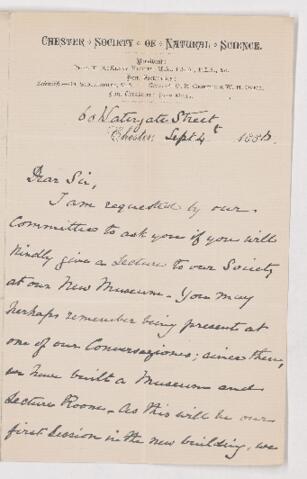 CHESTER SOCIETY OF NATURAL SCIENCE.
President:
60 Watergate Street
Chester, Sept 4th 188
Dear Sir,
I am requested by our
Committee to ask you if you will
kindly give a Lecture to our Society
at our New Museum. You may
perhaps remember being present at
one of our Conversaziones; since then,
we have built a Museum and
Lecture Room. As this will be our
first Session in the new building, we